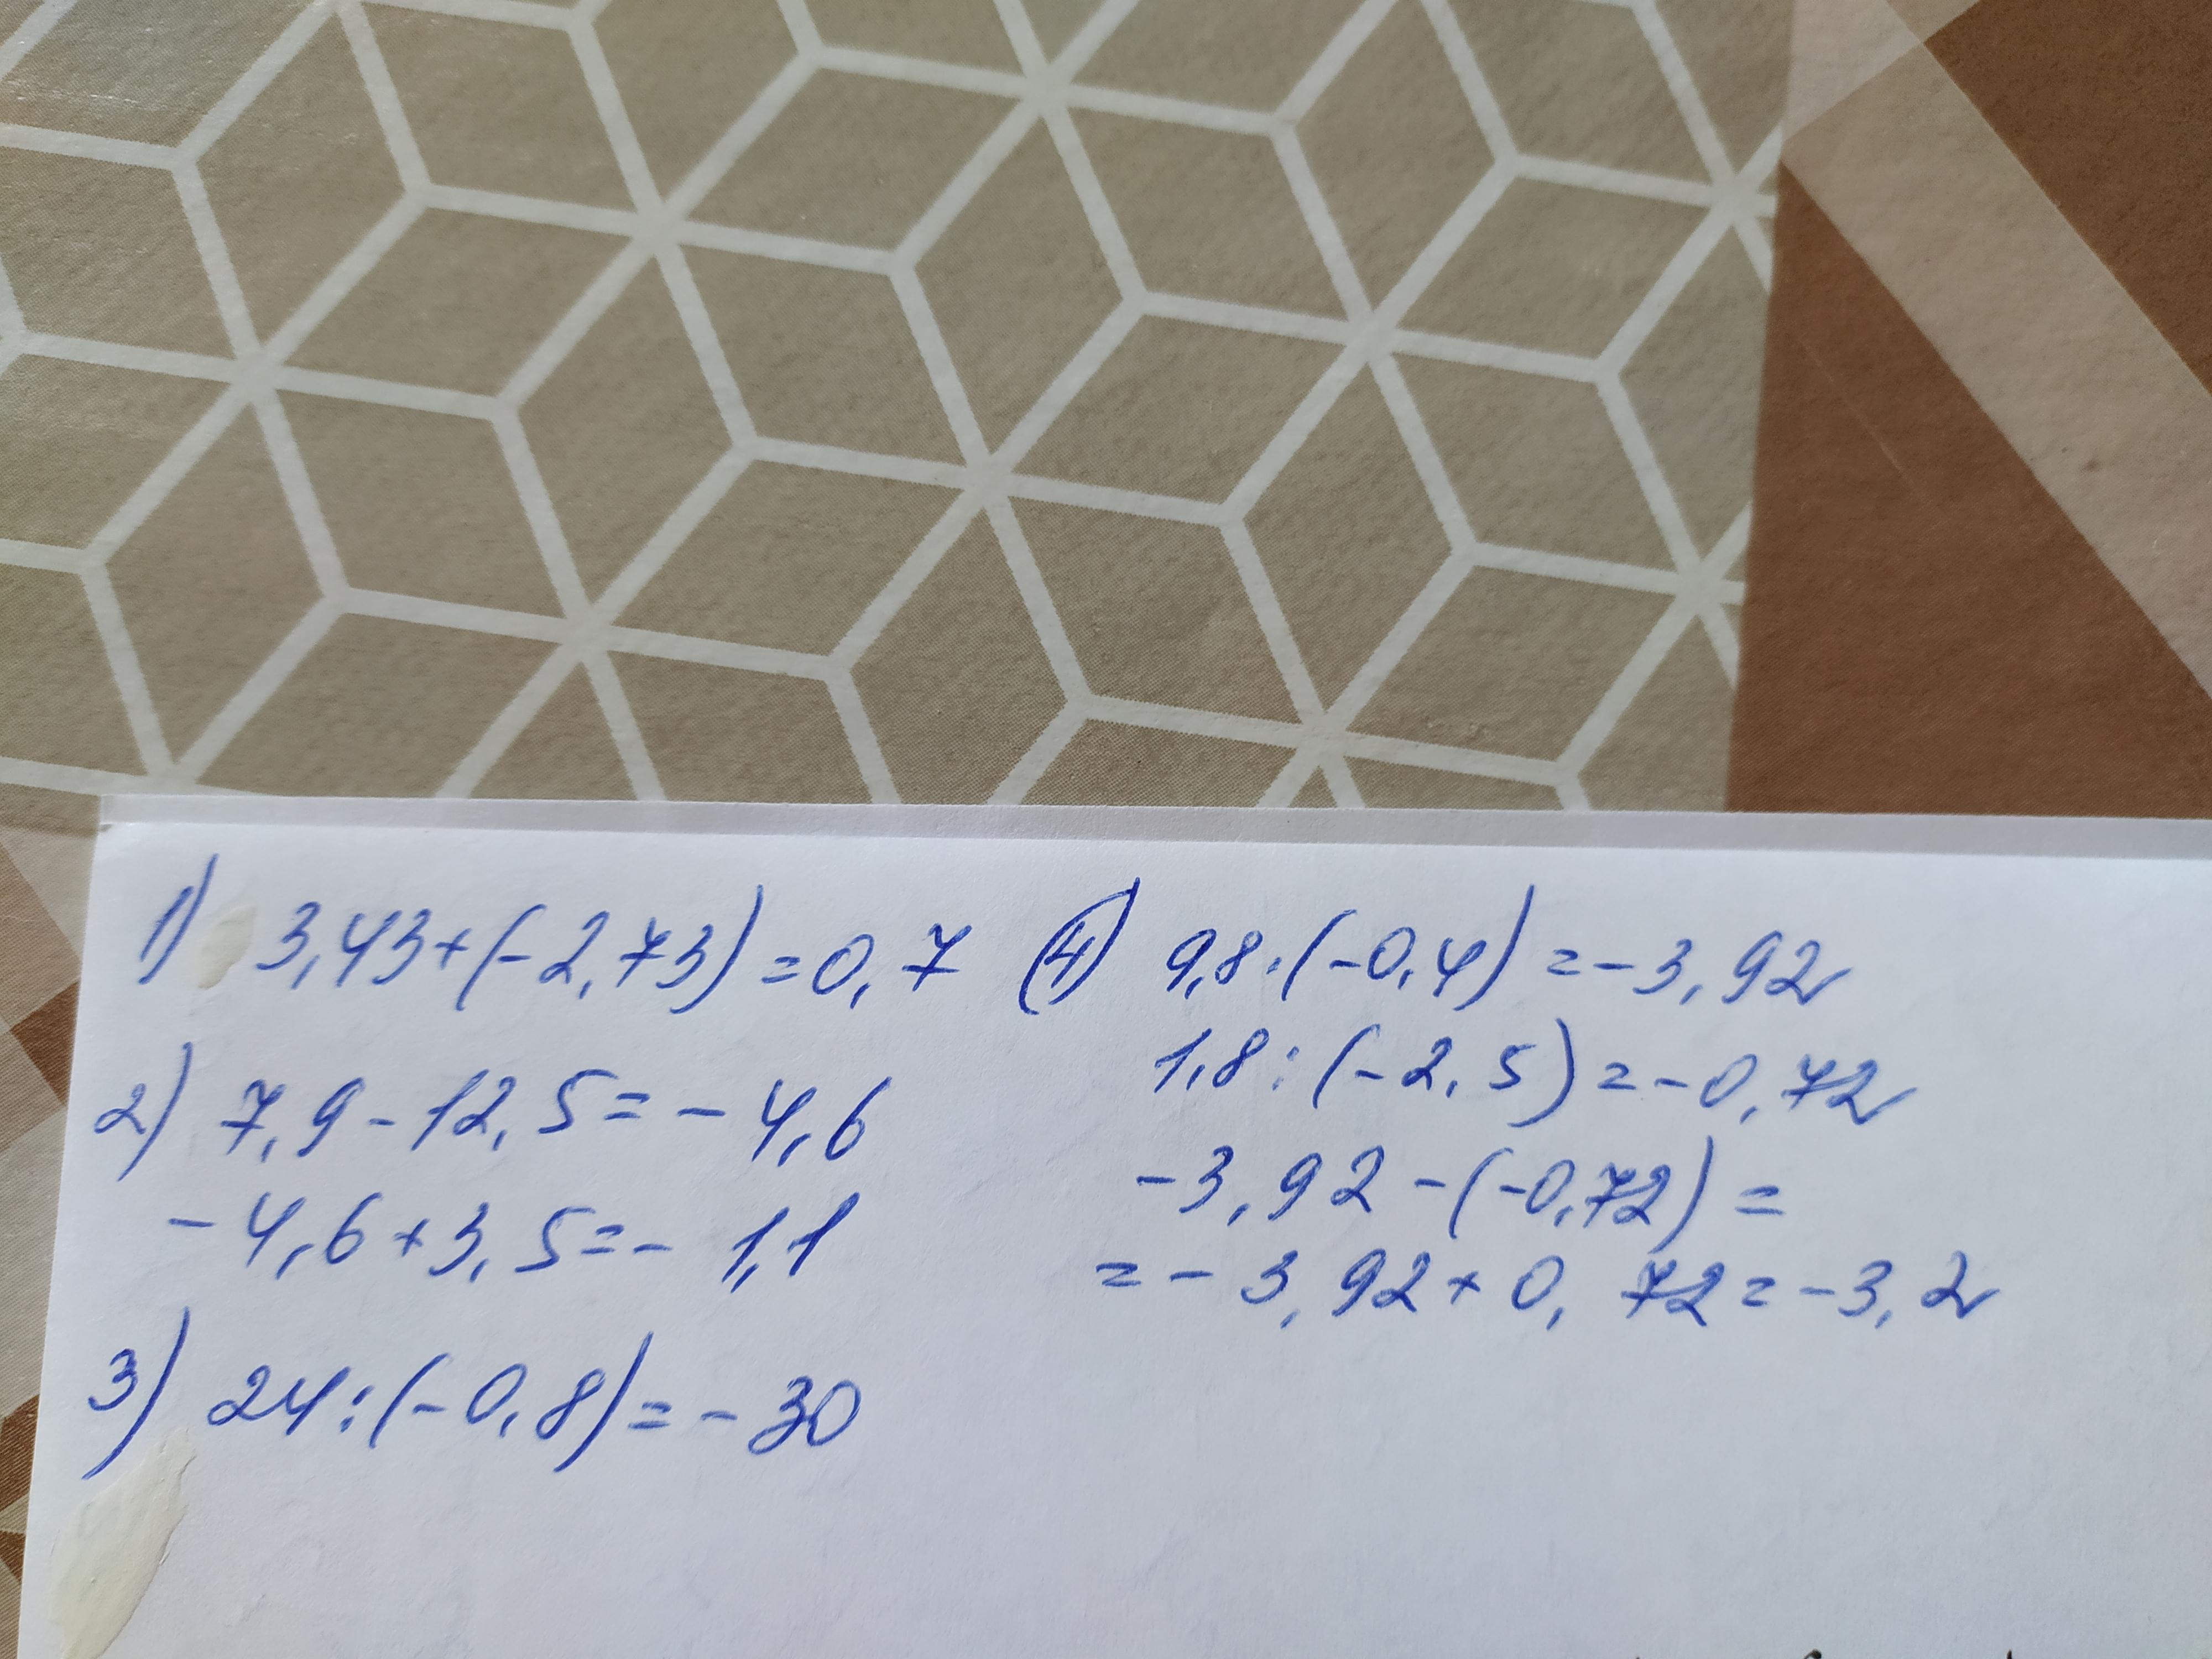 1) 3,43+(-2,73)=0,7
2) 7,9-12,5=-4,6
-4,6+3,5=-1,1
3) 24:(-0,8)=-30
(4) 9,8·(-0,4)=-3,92
1,8:(-2,5)=-0,72
-3,92-(-0,72)=
=-3,92+0,72=-3,2